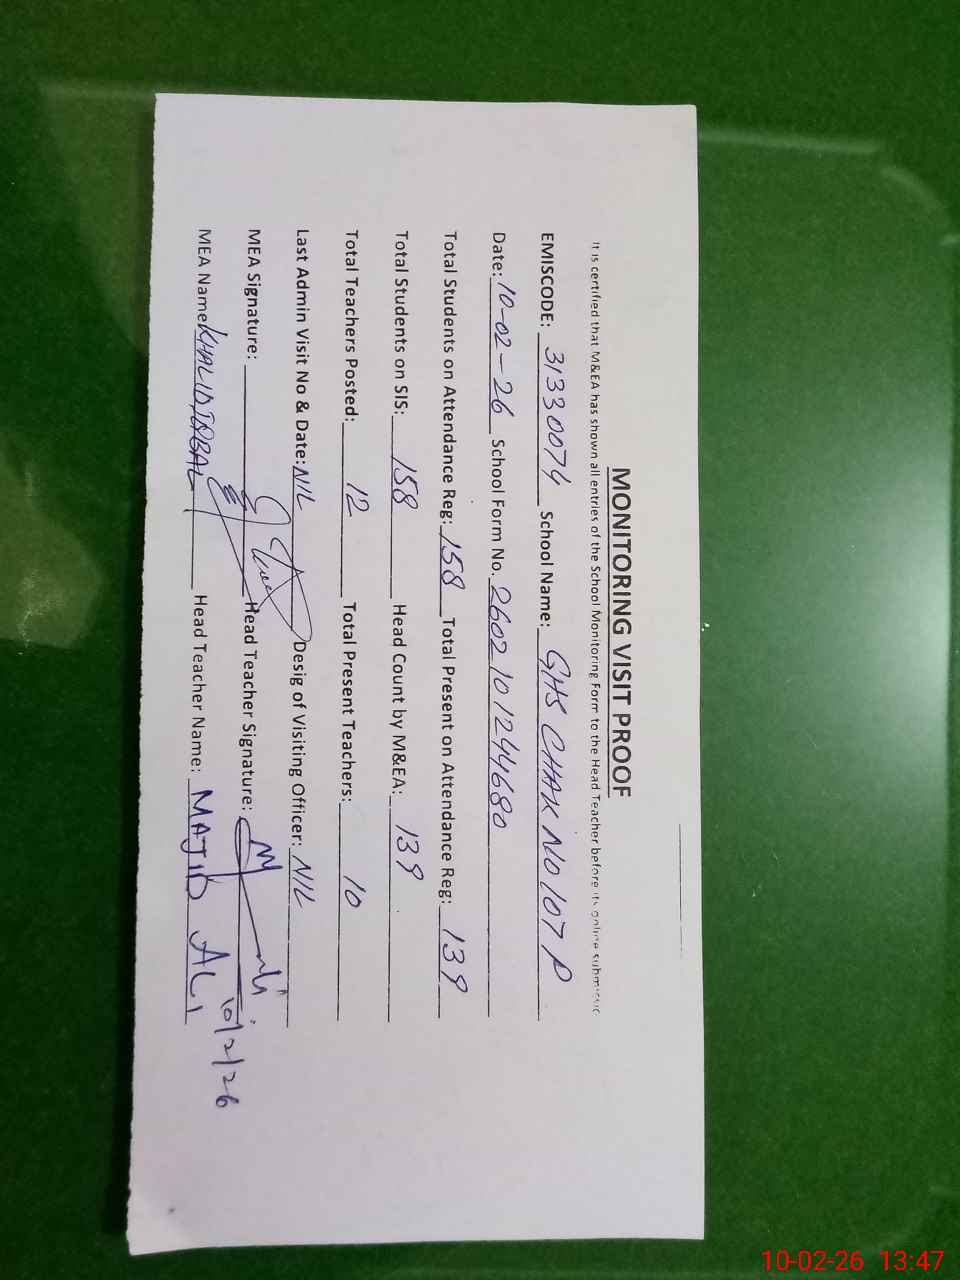 MONITORING VISIT PROOF
It is certified that M&EA has shown all entries of the School Monitoring Form to the Head Teacher before its online
EMISCODE: 31330074 School Name: GHS CHAK NO 107 P
Date: 10-02-26 School Form No. 2602101244680
Total Students on Attendance Reg: 158 Total Present on Attendance Reg: 139
Total Students on SIS: 158 Head Count by M&EA: 139
Total Teachers Posted: 12 Total Present Teachers: 10
Last Admin Visit No & Date: NIL Desig of Visiting Officer: NIL
MEA Signature: Head Teacher Signature:
10/2/26
MEA Name KHALID IQBAL Head Teacher Name: MAJID ALI
10-02-26 13:47